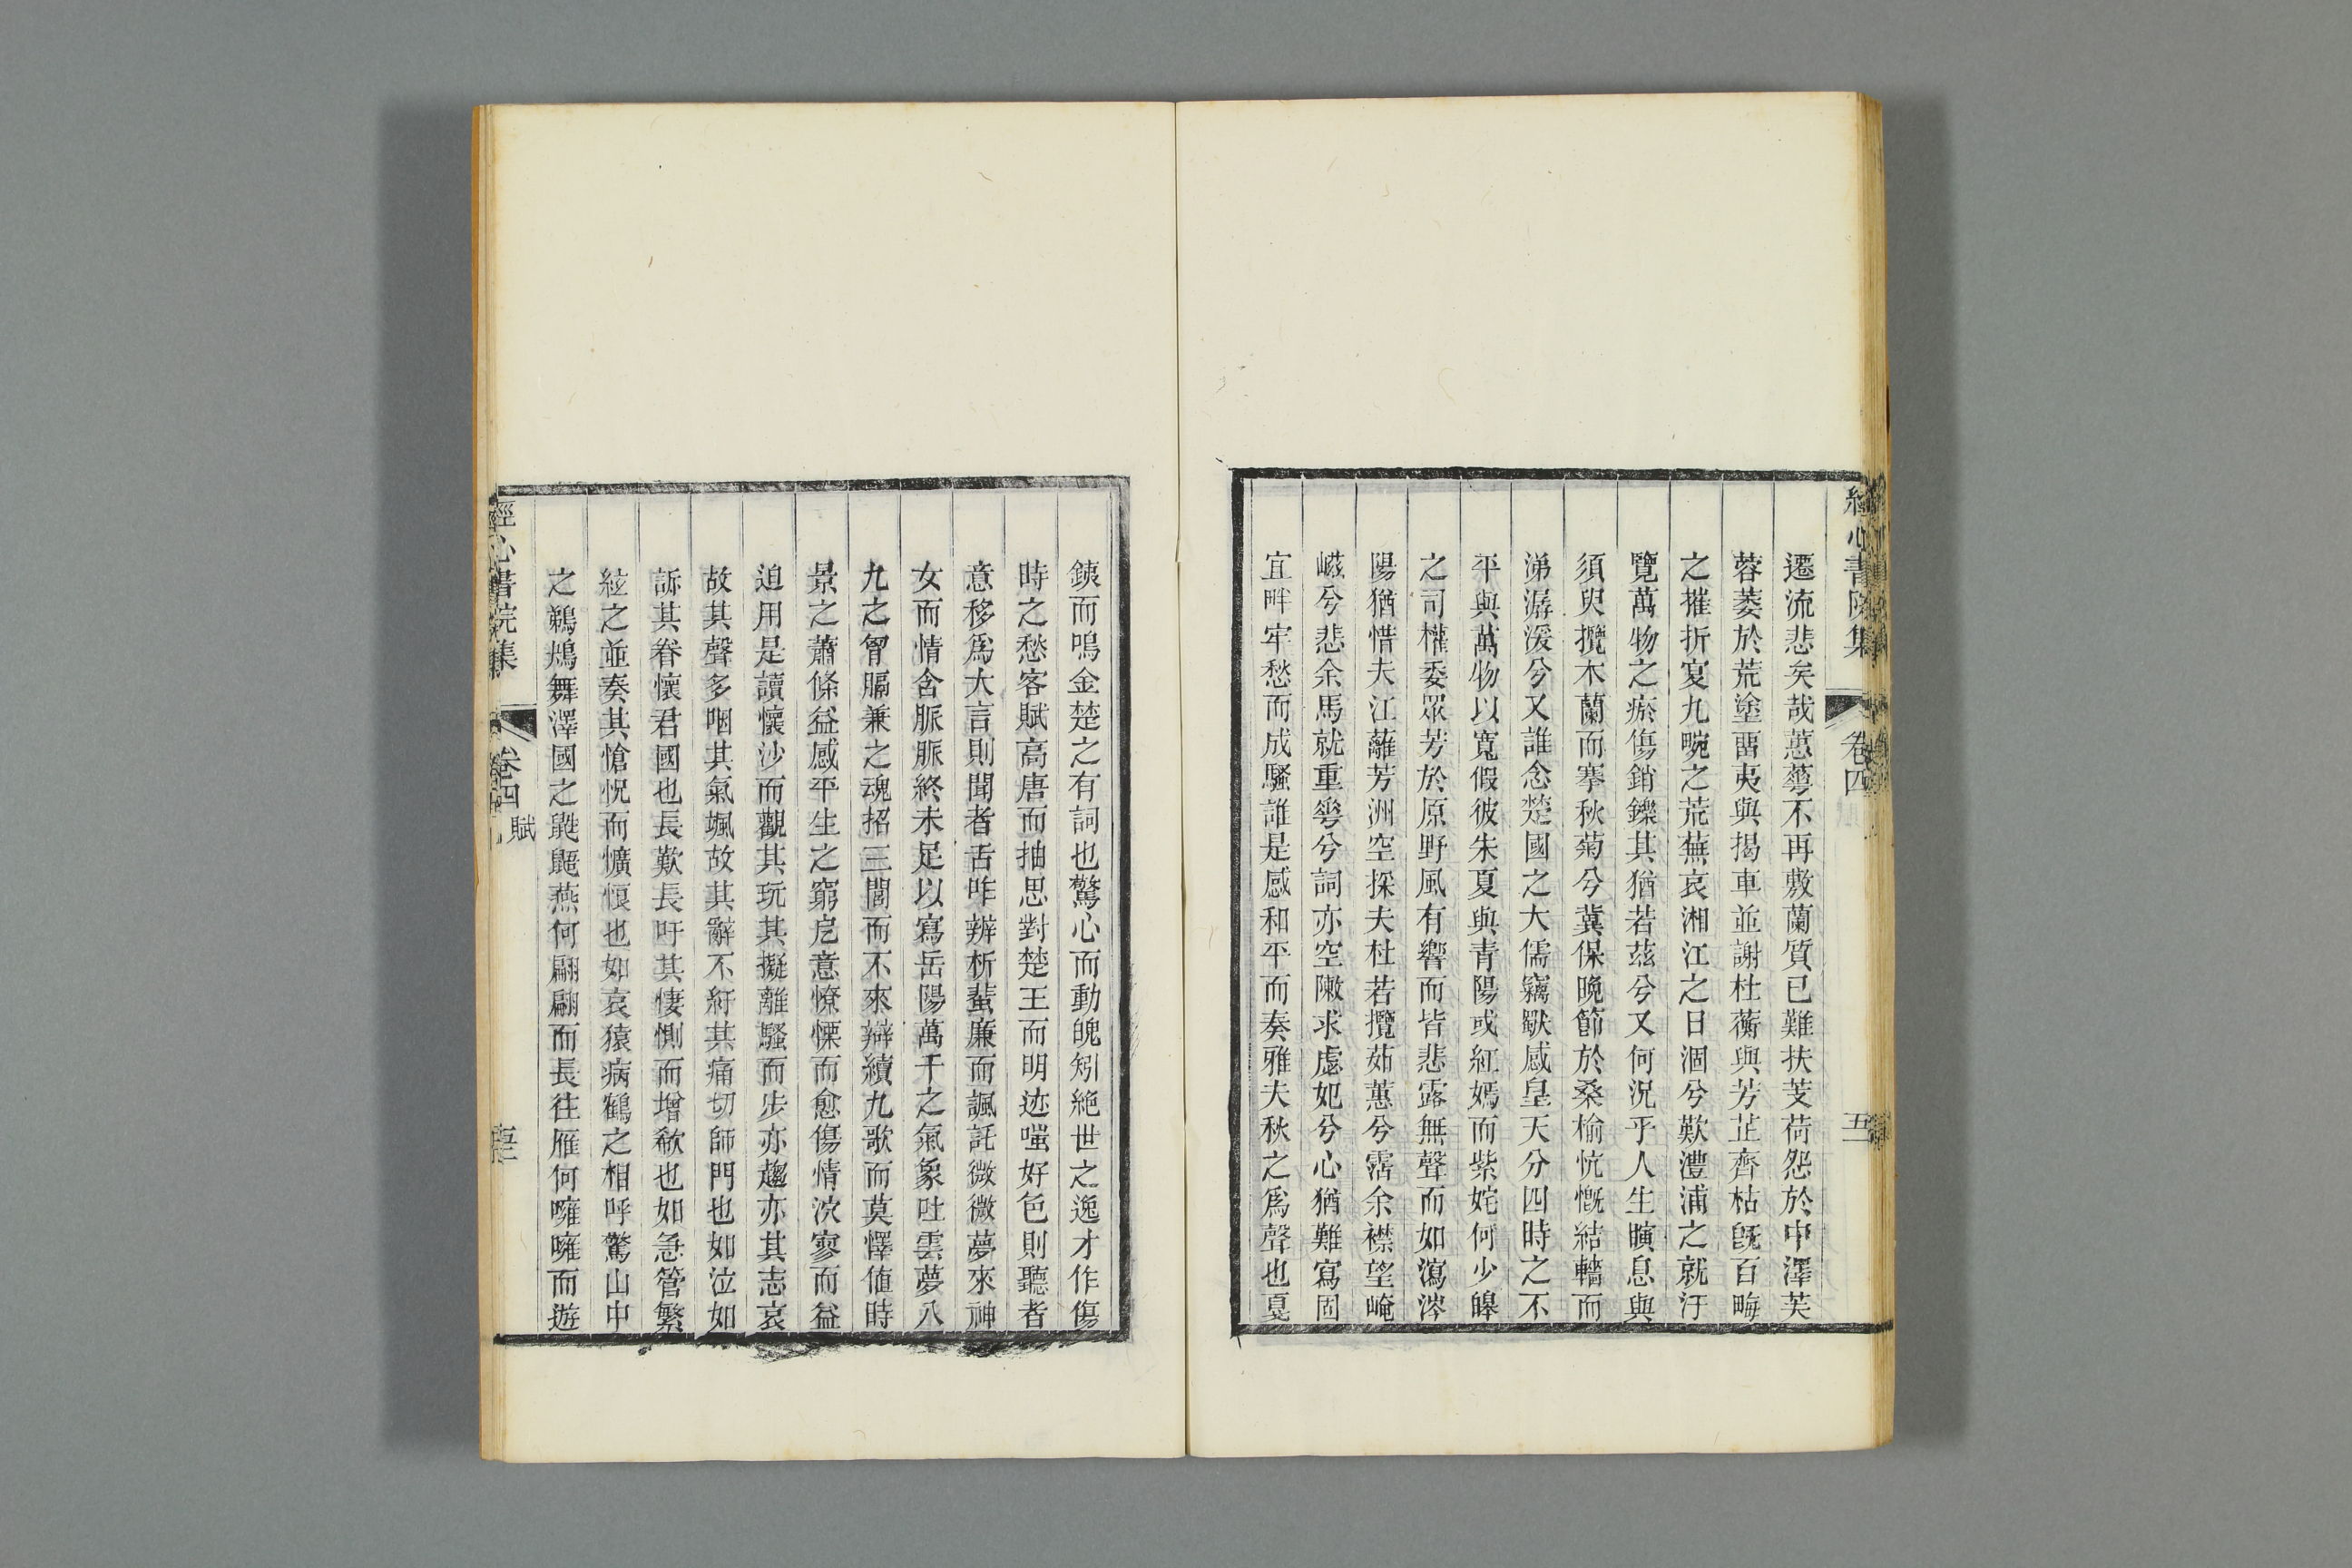 經心書院集 卷四 五
遷流悲矣哉蕙蘤不再敷蘭質已難扶芰荷怨於中澤芙
蓉萎於荒塗畱夷與揭車並謝杜蘅與芳芷齊枯旣百畮
之摧折㚆九畹之荒蕪哀湘江之日涸兮歎澧浦之就汙
覽萬物之瘀傷銷鑠其猶若茲兮又何況乎人生瞚息與
須臾攬木蘭而搴秋菊兮冀保晚節於桑榆忼慨結轖而
涕潺湲兮又誰念楚國之大儒竊獨感皇天分四時之不
平與萬物以寬假彼朱夏與靑陽或紅嫣而紫姹何少皡
之司權委眾芳於原野風有響而皆悲露無聲而如瀉涔
陽猶惜夫江蘺芳洲空採夫杜若攬茹蕙兮霑余襟望崦
嵫兮悲余馬就重華兮詞亦空敶求虙妃兮心猶難寫固
宜畔牢愁而成騷誰是感和平而奏雅夫秋之爲聲也戛
銕而鳴金楚之有詞也驚心而動魄矧絶世之逸才作傷
時之愁客賦高唐而抽思對楚王而明迹嗤好色則聽者
意移爲大言則聞者舌咋辨析蜚廉而諷託微微夢來神
女而情含脈脈終未足以寫岳陽萬千之氣象吐雲夢八
九之胷膈兼之魂招三閭而不來辯續九歌而莫懌値時
景之蕭條益感平生之窮戹意憭慄而愈傷情泬寥而益
迫用是讀懷沙而觀其玩其擬離騷而步亦趨亦其志哀
故其聲多咽其氣颯故其辭不紆其痛切師門也如泣如
訴其眷懷君國也長歎長吁其悽惻而增欷也如急管繁
絃之並奏其愴怳而懭悢也如哀猿病鶴之相呼驚山中
之鵜鴂舞澤國之鼪鼯燕何翩翩而長往雁何噰噰而遊
經心書院集 卷四 賦